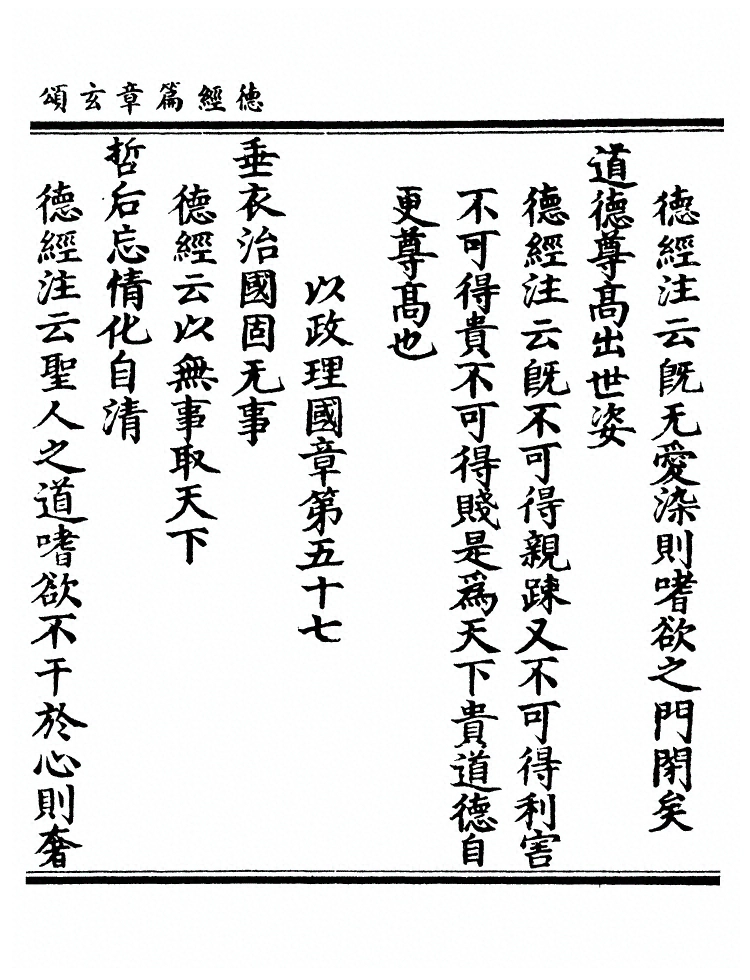 德經篇章玄頌
德經注云旣无愛染則嗜欲之門閉矣
道德尊髙出世姿
德經注云旣不可得親踈又不可得利害
不可得貴不可得賤是爲天下貴道德自
更尊髙也
以政理國章第五十七
垂衣治國固无事
德經云以無事取天下
哲后忘情化自清
德經注云聖人之道嗜欲不干於心則奢